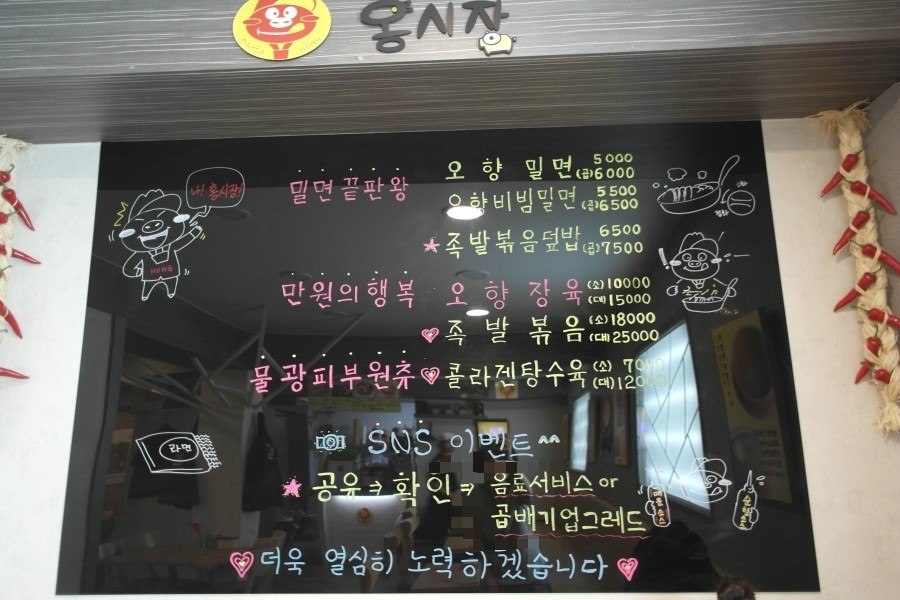 홍시장
나! 홍시장!
HONG
밀면끝판왕 오향밀면 5000
(곱)6000
오향비빔밀면 5500
(곱)6500
★족발볶음덮밥 6500
(곱)7500
만원의행복 오향장육 (소)10000
(대)15000
♡족발볶음 (소)18000
(대)25000
물광피부원츄♡콜라겐탕수육 (소) 7000
(대)12000
라면
SNS 이벤트^^
★ 공유→확인⇒ 음료서비스 or
곱배기업그레드
♡더욱 열심히 노력하겠습니다♡